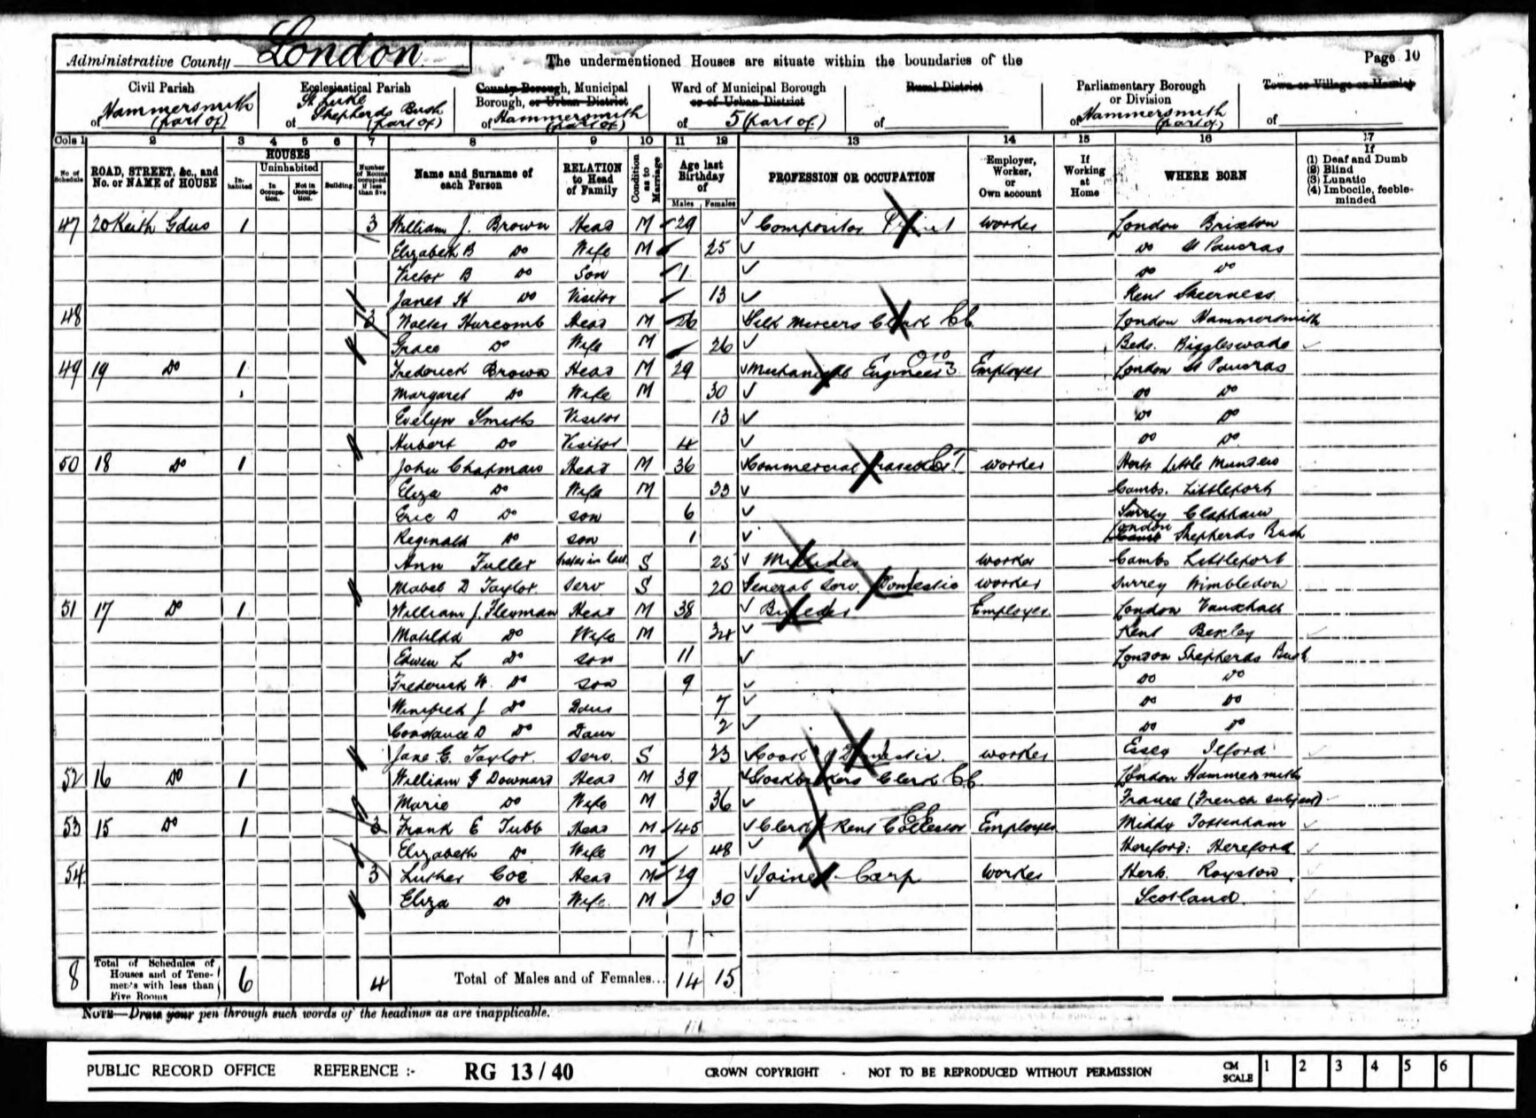 Administrative County London The undermentioned Houses are situate within the boundaries of the Page 10
Civil Parish of Hammersmith (part of)
Ecclesiastical Parish of St Luke Shepherds Bush (part of)
County Borough, Municipal Borough, or Urban District of Hammersmith (part of)
Ward of Municipal Borough or of Urban District of 5 (part of)
Rural District of
Parliamentary Borough or Division of Hammersmith (part of)
Town or Village or Hamlet of
Cols 1 2 3 4 5 6 7 8 9 10 11 12 13 14 15 16 17
No. of Schedule
ROAD, STREET, &c., and No. or NAME of HOUSE
HOUSES
Inhabited
Uninhabited
In Occupation.
Not in Occupation.
Building.
Number of Rooms occupied if less than five
Name and Surname of each Person
RELATION to Head of Family
Condition as to Marriage
Age last Birthday of
Males Females
PROFESSION OR OCCUPATION
Employer, Worker, or Own account
If Working at Home
WHERE BORN
If
(1) Deaf and Dumb
(2) Blind
(3) Lunatic
(4) Imbecile, feeble-minded
47 20 Keith Gdns 1 3 William J. Brown Head M 29 Compositor worker London Brixton
Elizabeth B Do Wife M 25 Do St Pancras
Victor B Do Son 1 Do Do
Janet H Do Visitor 13 Kent Sheerness
48 3 Walter Harcomb Head M 26 Silk Mercers Clerk London Hammersmith
Grace Do Wife M 26 Beds. Biggleswade
49 19 Do 1 Frederick Brown Head M 29 Mechanical Engineer Employer London St Pancras
Margaret Do Wife M 30 Do Do
Evelyn Smith Visitor 13 Do Do
Hubert Do Visitor 4 Do Do
50 18 Do 1 John Chapman Head M 36 Commercial Traveller worker Herts Little Munden
Eliza Do Wife M 33 Cambs. Littleport
Eric D Do Son 6 Surrey Clapham
Reginald Do Son 1 London Shepherds Bush
Ann Fuller Sister in law S 25 worker Cambs Littleport
Mabel D Taylor Serv S 20 General Serv. Domestic worker Surrey Wimbledon
51 17 Do 1 William J. Flexman Head M 38 Builder Employer London Vauxhall
Matilda Do Wife M 34 Kent Bexley
Edwin L Do Son 11 London Shepherds Bush
Frederick W. Do Son 9 Do Do
Winifred J Do Daur 7 Do Do
Constance D Do Daur 2 Do Do
Jane E. Taylor Serv. S 23 Cook Domestic. worker Essex Ilford
52 16 Do 1 William G Downard Head M 39 Stockbrokers Clerk London Hammersmith
Marie Do Wife M 36 France (French subject)
53 15 Do 1 3 Frank E Tubb Head M 45 Clerk Rent Collector Employer Middx Tottenham
Elizabeth Do Wife M 48 Hereford: Hereford
54 3 Luther Coe Head M 29 Joiner Carp worker Herts. Royston
Eliza Do Wife M 30 Scotland
8 Total of Schedules of Houses and of Tenements with less than Five Rooms 6 4 Total of Males and of Females... 14 15
NOTE—Draw your pen through such words of the headings as are inapplicable.
PUBLIC RECORD OFFICE REFERENCE :- RG 13 / 40 CROWN COPYRIGHT · NOT TO BE REPRODUCED WITHOUT PERMISSION CM SCALE 1 2 3 4 5 6